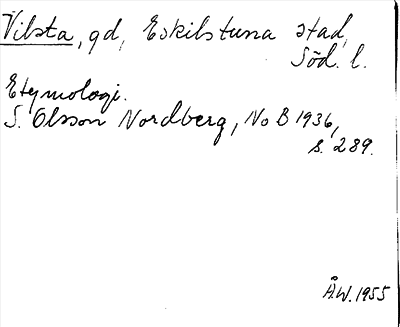 Vilsta, gd, Eskilstuna stad,
Söd. l.
Etymologi.
S. Olsson Nordberg, NoB 1936,
s. 289.
Å.W. 1955